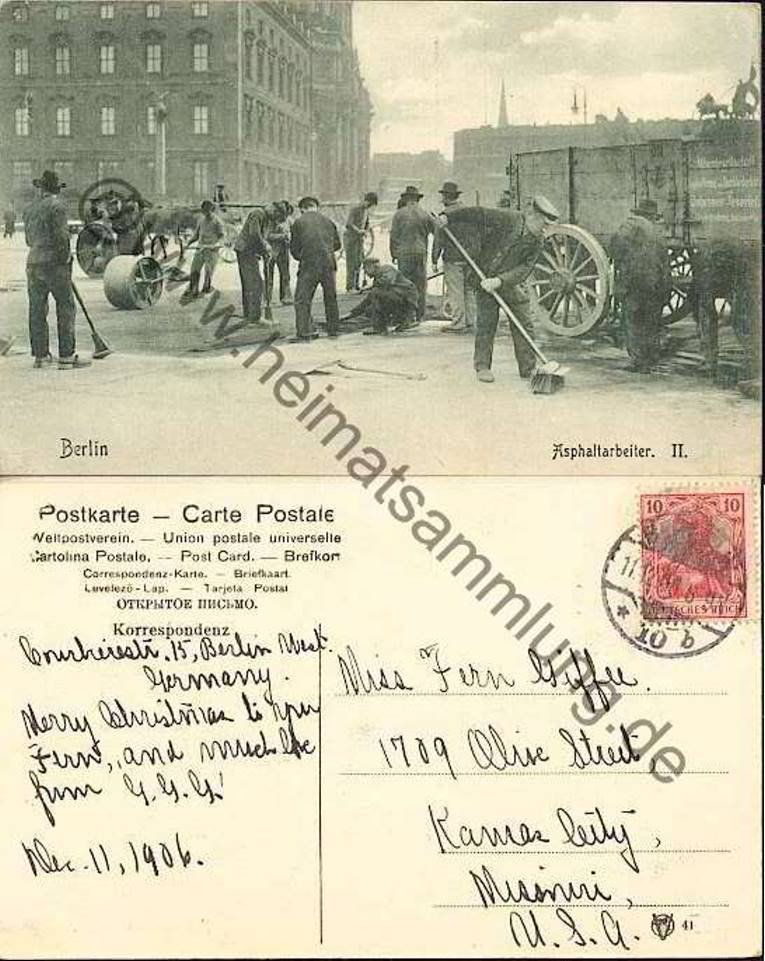 Berlin
Asphaltarbeiter. II.
www.heimatsammlung.de
Postkarte — Carte Postale
Weltpostverein. — Union postale universelle
Cartolina Postale. — Post Card. — Brefkort
Correspondenz-Karte. — Briefkaart.
Levelező-Lap. — Tarjeta Postal
ОТКРЫТОЕ ПИСЬМО.
Korrespondenz
10 10
DEUTSCHES REICH
15, Berlin West.
Germany.
Merry Christmas to you
Fern, and much love
from G.G.G.
Dec. 11, 1906.
Miss Fern Giffee.
1709 Olive Street,
Kansas City,
Missouri,
U.S.A.
41